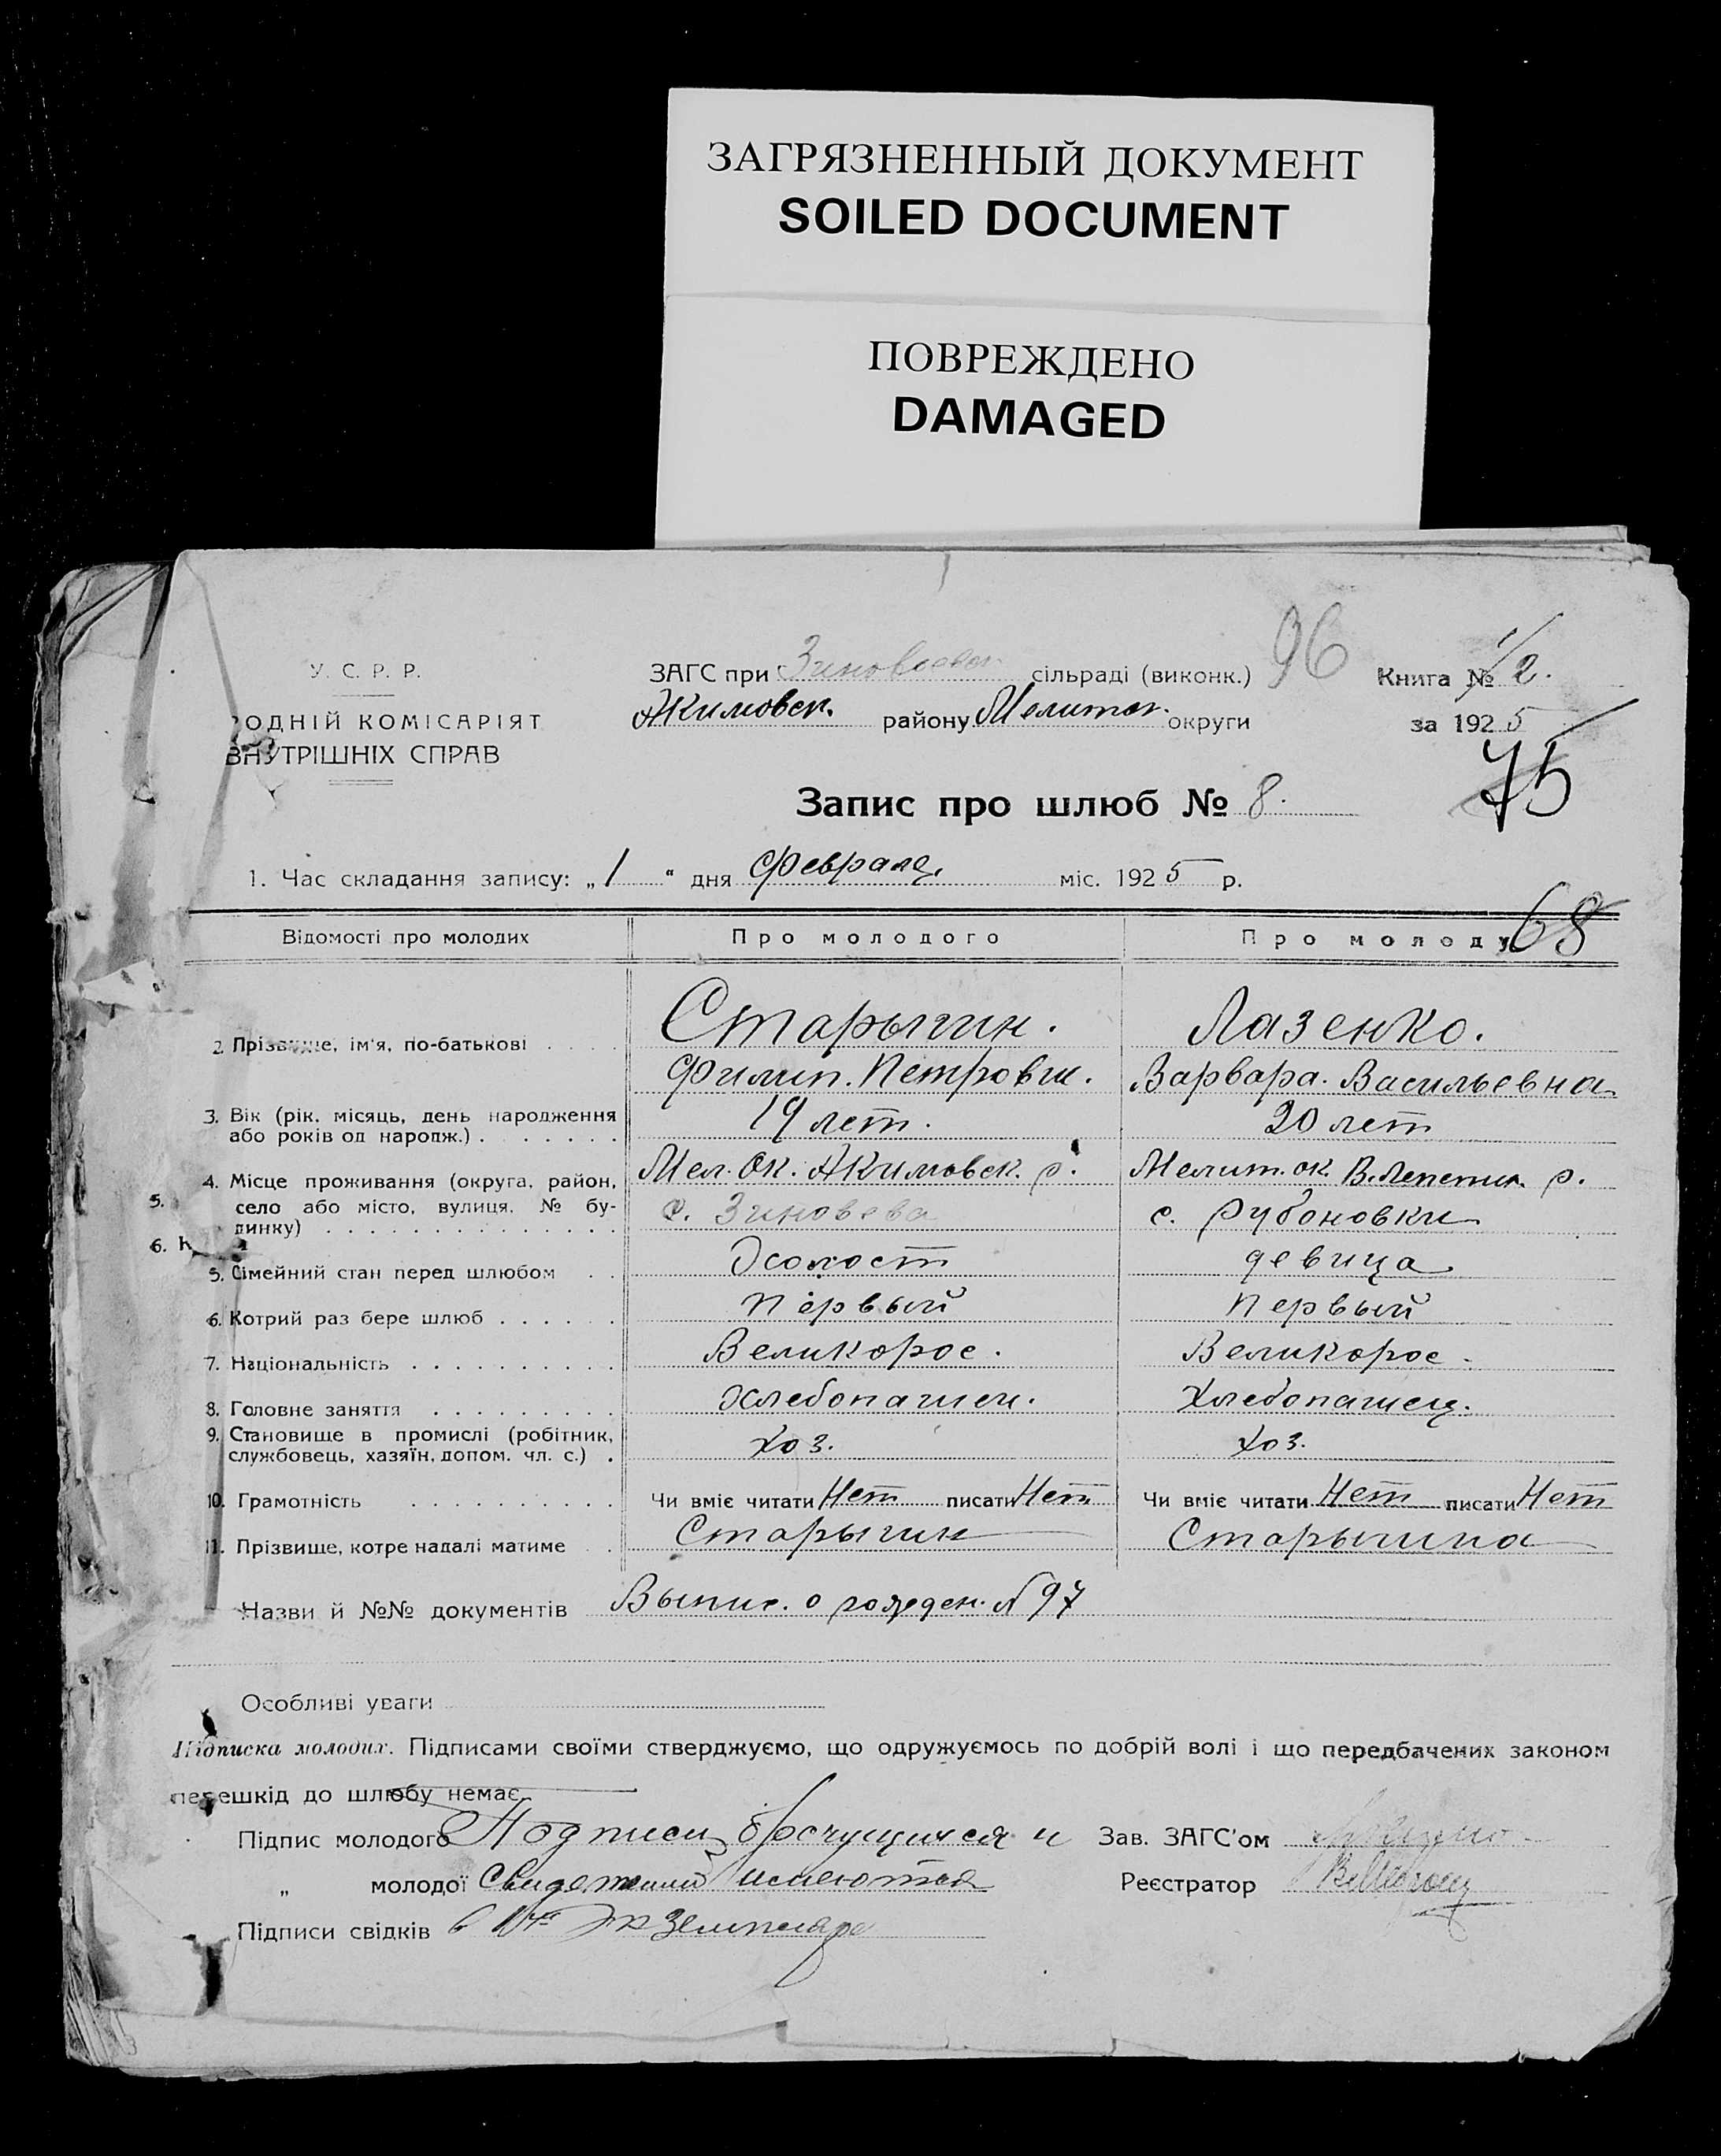 ЗАГРЯЗНЕННЫЙ ДОКУМЕНТ
SOILED DOCUMENT
ПОВРЕЖДЕНО
DAMAGED
96
У. С. Р. Р.
ОДНІЙ КОМІСАРІЯТ
ВНУТРІШНІХ СПРАВ
ЗАГС при Зиновьевск. сільраді (виконк.)
Акимовск. району Мелитоп. округи
Книга № 1/2.
за 1925
75
Запис про шлюб № 8.
1. Час складання запису: „1" дня Февраля міс. 1925 р.
68
Відомості про молодих Про молодого Про молоду
2. Прізвище, ім'я, по-батькові Старыгин. Лазенко.
Филип. Петрович. Варвара. Васильевна
3. Вік (рік, місяць, день народження або років од народж.) 19 лет. 20 лет
4. Місце проживання (округа, район, Мел. Ок. Акимовск. р. Мелит. ок. В. Лепетих. р.
5. село або місто, вулиця, № бу- с. Зиновева с. Рубоновки
динку)
6. К
5. Сімейний стан перед шлюбом Холост девица
6. Котрий раз бере шлюб первый первый
7. Національність Великорос. Великорос.
8. Головне заняття Хлебопашец. Хлебопашец.
9. Становище в промислі (робітник, службовець, хазяїн, допом. чл. с.) хоз. хоз.
10. Грамотність Чи вміє читати Нет писати Нет Чи вміє читати Нет писати Нет
11. Прізвище, котре надалі матиме Старыгин Старыгина
Назви й №№ документів Выпис. о рожден. № 97
Особливі уваги
Підписка молодих. Підписами своїми стверджуємо, що одружуємось по добрій волі і що передбачених законом
перешкід до шлюбу немає.
Підпис молодого Подписи брачущихся и Зав. ЗАГС'ом
„ молодої Свидетелей имеются Реєстратор
Підписи свідків в 1м Экземпляре